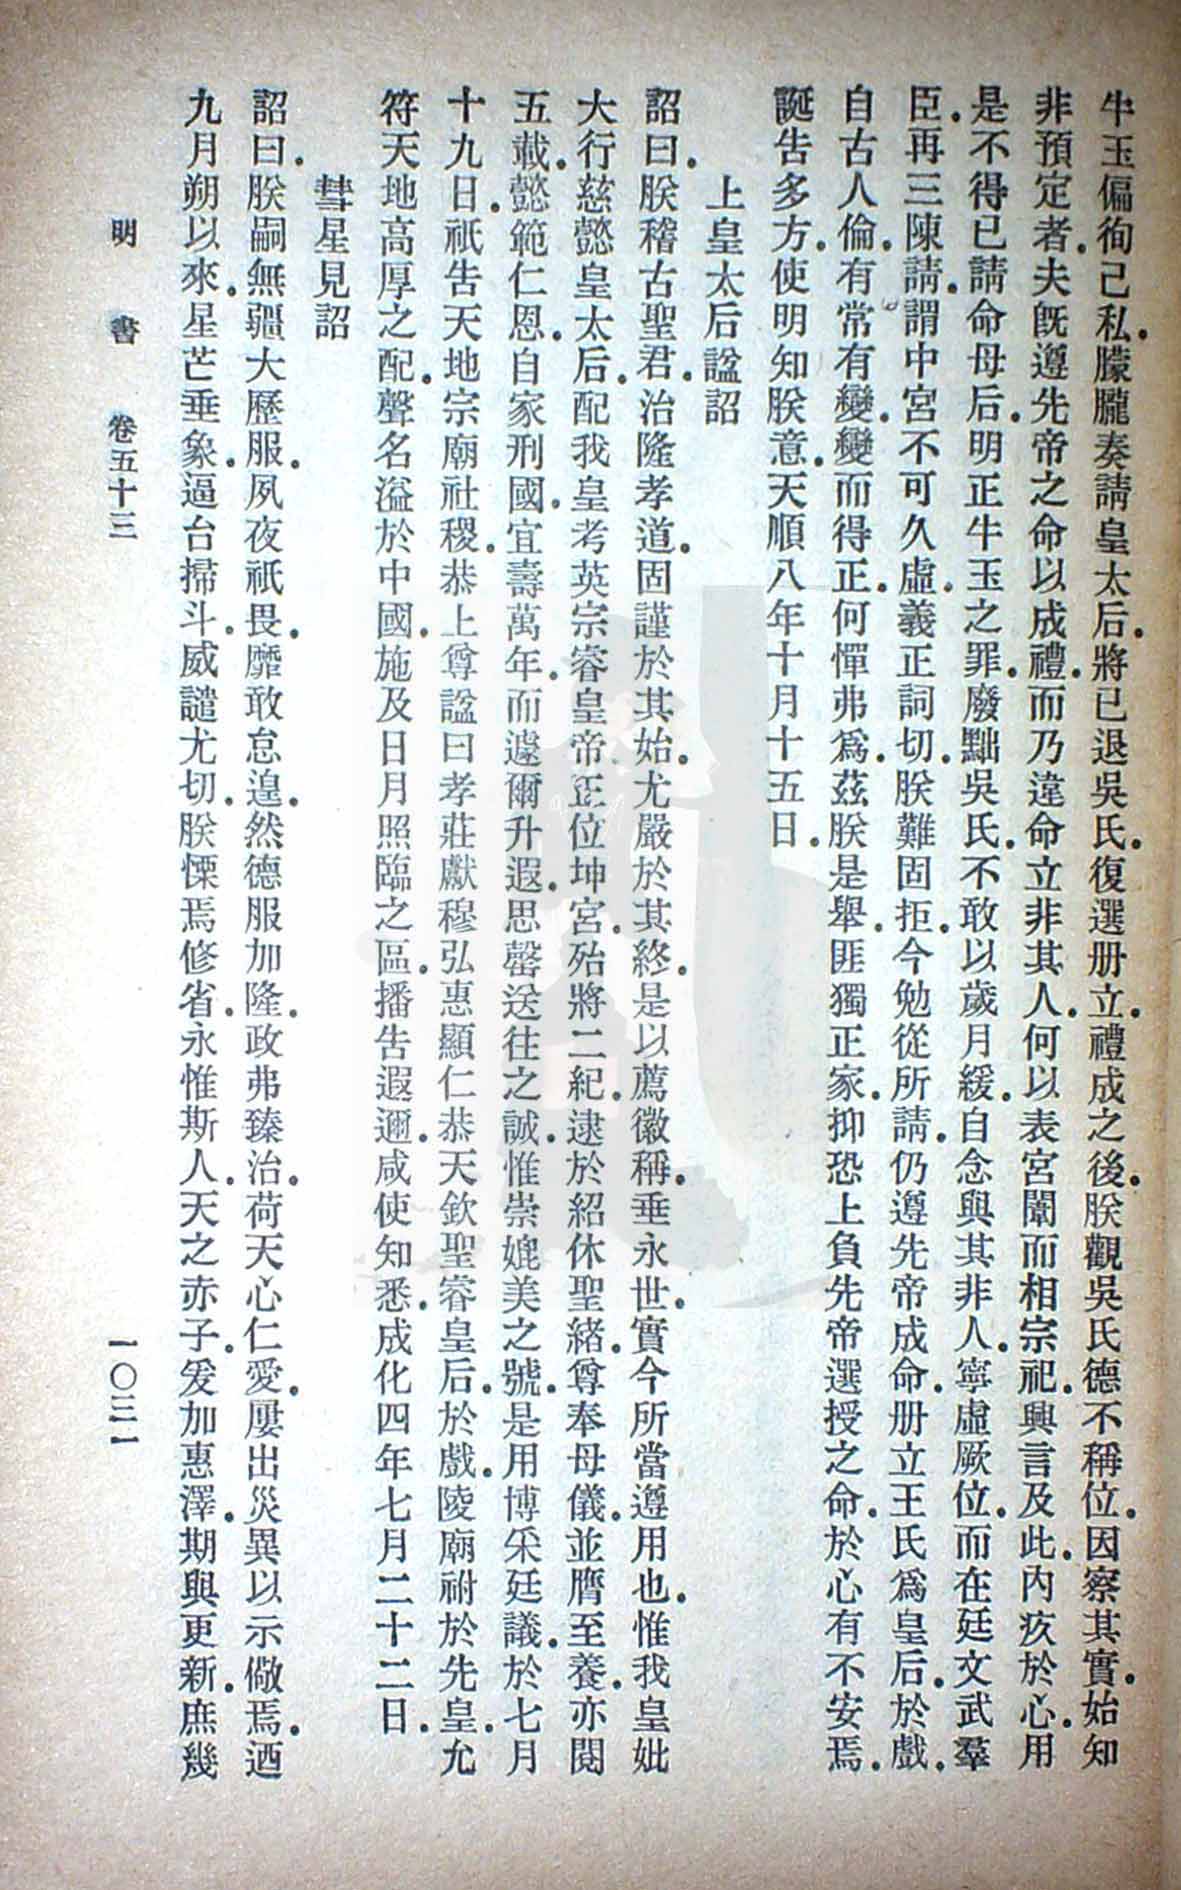 牛玉偏徇己私.朦朧奏請皇太后.將已退吳氏.復選册立.禮成之後.朕觀吳氏德不稱位.因察其實.始知
非預定者.夫既遵先帝之命以成禮.而乃違命立非其人.何以表宮闈而相宗祀.興言及此.內疚於心.用
是不得已請命母后.明正牛玉之罪.廢黜吳氏.不敢以歲月緩.自念與其非人.寧虛厥位.而在廷文武羣
臣.再三陳請.謂中宮不可久虛.義正詞切.朕難固拒.今勉從所請.仍遵先帝成命.册立王氏爲皇后.於戲.
自古人倫.有常有變.變而得正.何憚弗爲.茲朕是舉.匪獨正家.抑恐上負先帝選授之命.於心有不安焉.
誕告多方.使明知朕意.天順八年十月十五日.
上皇太后諡詔
詔曰.朕稽古聖君.治隆孝道.固謹於其始.尤嚴於其終.是以薦徽稱.垂永世.實今所當遵用也.惟我皇妣
大行慈懿皇太后.配我皇考英宗睿皇帝.正位坤宮.殆將二紀.逮於紹休聖緒.尊奉母儀.並膺至養.亦閱
五載.懿範仁恩.自家刑國.宜壽萬年.而遽爾升遐.思罄送往之誠.惟崇媲美之號.是用博采廷議.於七月
十九日.祇告天地宗廟社稷.恭上尊諡曰孝莊獻穆弘惠顯仁恭天欽聖睿皇后.於戲.陵廟祔於先皇.允
符天地高厚之配.聲名溢於中國.施及日月照臨之區.播告遐邇.咸使知悉.成化四年七月二十二日.
彗星見詔
詔曰.朕嗣無疆大歷服.夙夜祇畏.靡敢怠遑.然德服加隆.政弗臻治.荷天心仁愛.屢出災異以示儆焉.迺
九月朔以來.星芒垂象.逼台掃斗.威譴尤切.朕慄焉修省.永惟斯人.天之赤子.爰加惠澤.期與更新.庶幾
明書 卷五十三 一〇三一